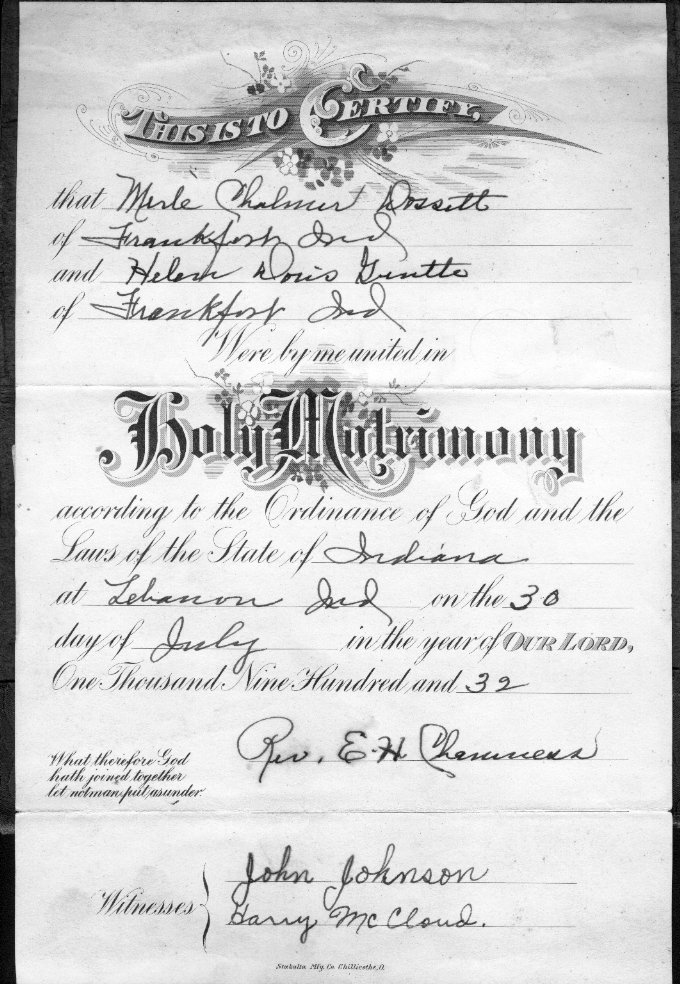 THIS IS TO CERTIFY,
that Merle Chalmer Dossett
of Frankfort Ind
and Helen Doris
of Frankfort Ind
Were by me united in
Holy Matrimony
according to the Ordinance of God and the
Laws of the State of Indiana
at Lebanon Ind on the 30
day of July in the year of OUR LORD,
One Thousand Nine Hundred and 32
Rev. E. H. Chamness
What therefore God
hath joined together
let not man put asunder.
John Johnson
Witnesses
Harry McCloud.
Mfg. Co. Chillicothe, O.